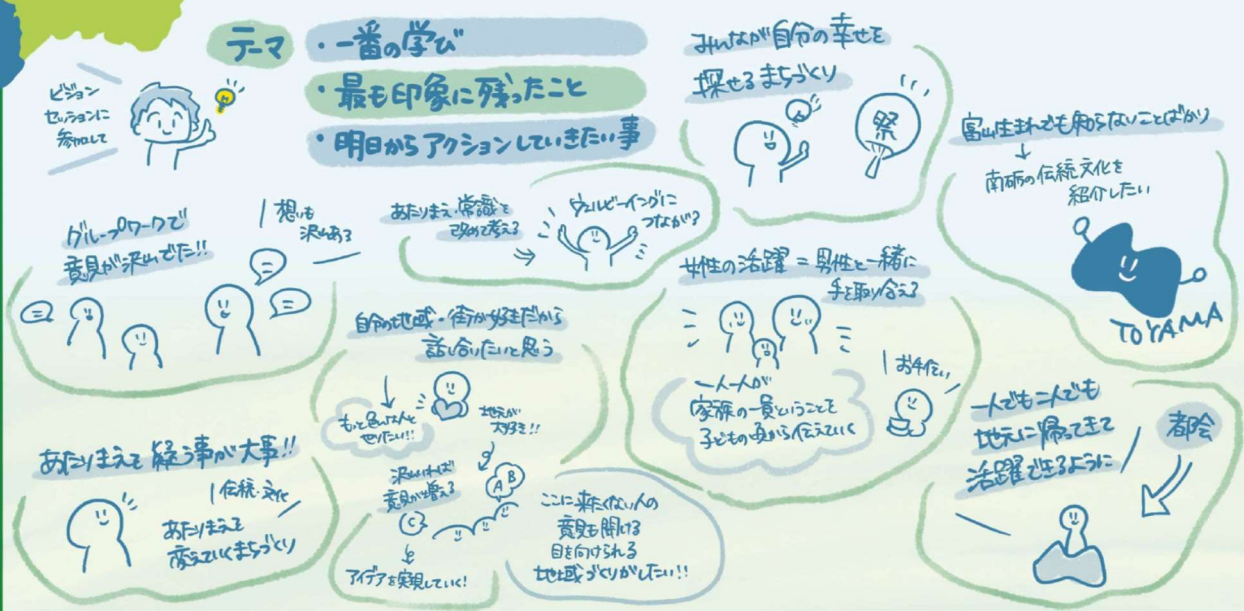 テーマ
・一番の学び
・最も印象に残ったこと
・明日からアクションしていきたい事
ビジョン
セッションに
参加して
みんなが自分の幸せを
探せるまちづくり
祭
富山生まれでも知らないことばかり
南砺の伝統文化を
紹介したい
TOYAMA
グループワークで
意見が沢山でた!!
想いも
沢山ある
あたりまえ・常識を
改めて考える
ウェルビーイングに
つながる?
女性の活躍=男性と一緒に
手を取り合える
一人一人が
家族の一員ということを
子どもの頃から伝えていく
お手伝い
自分の地域・街が好きだから
話し合いたいと思う
もっと色んな人と
やりたい!!
地元が
大好き!!
沢山いれば
意見が増える
A B
C
アイデアを実現していく!
ここに来たくない人の
意見も聞ける
目を向けられる
地域づくりがしたい!!
あたりまえを疑う事が大事!!
伝統・文化
あたりまえを
変えていくまちづくり
一人でも二人でも
地元に帰ってきて
活躍できるように
都会